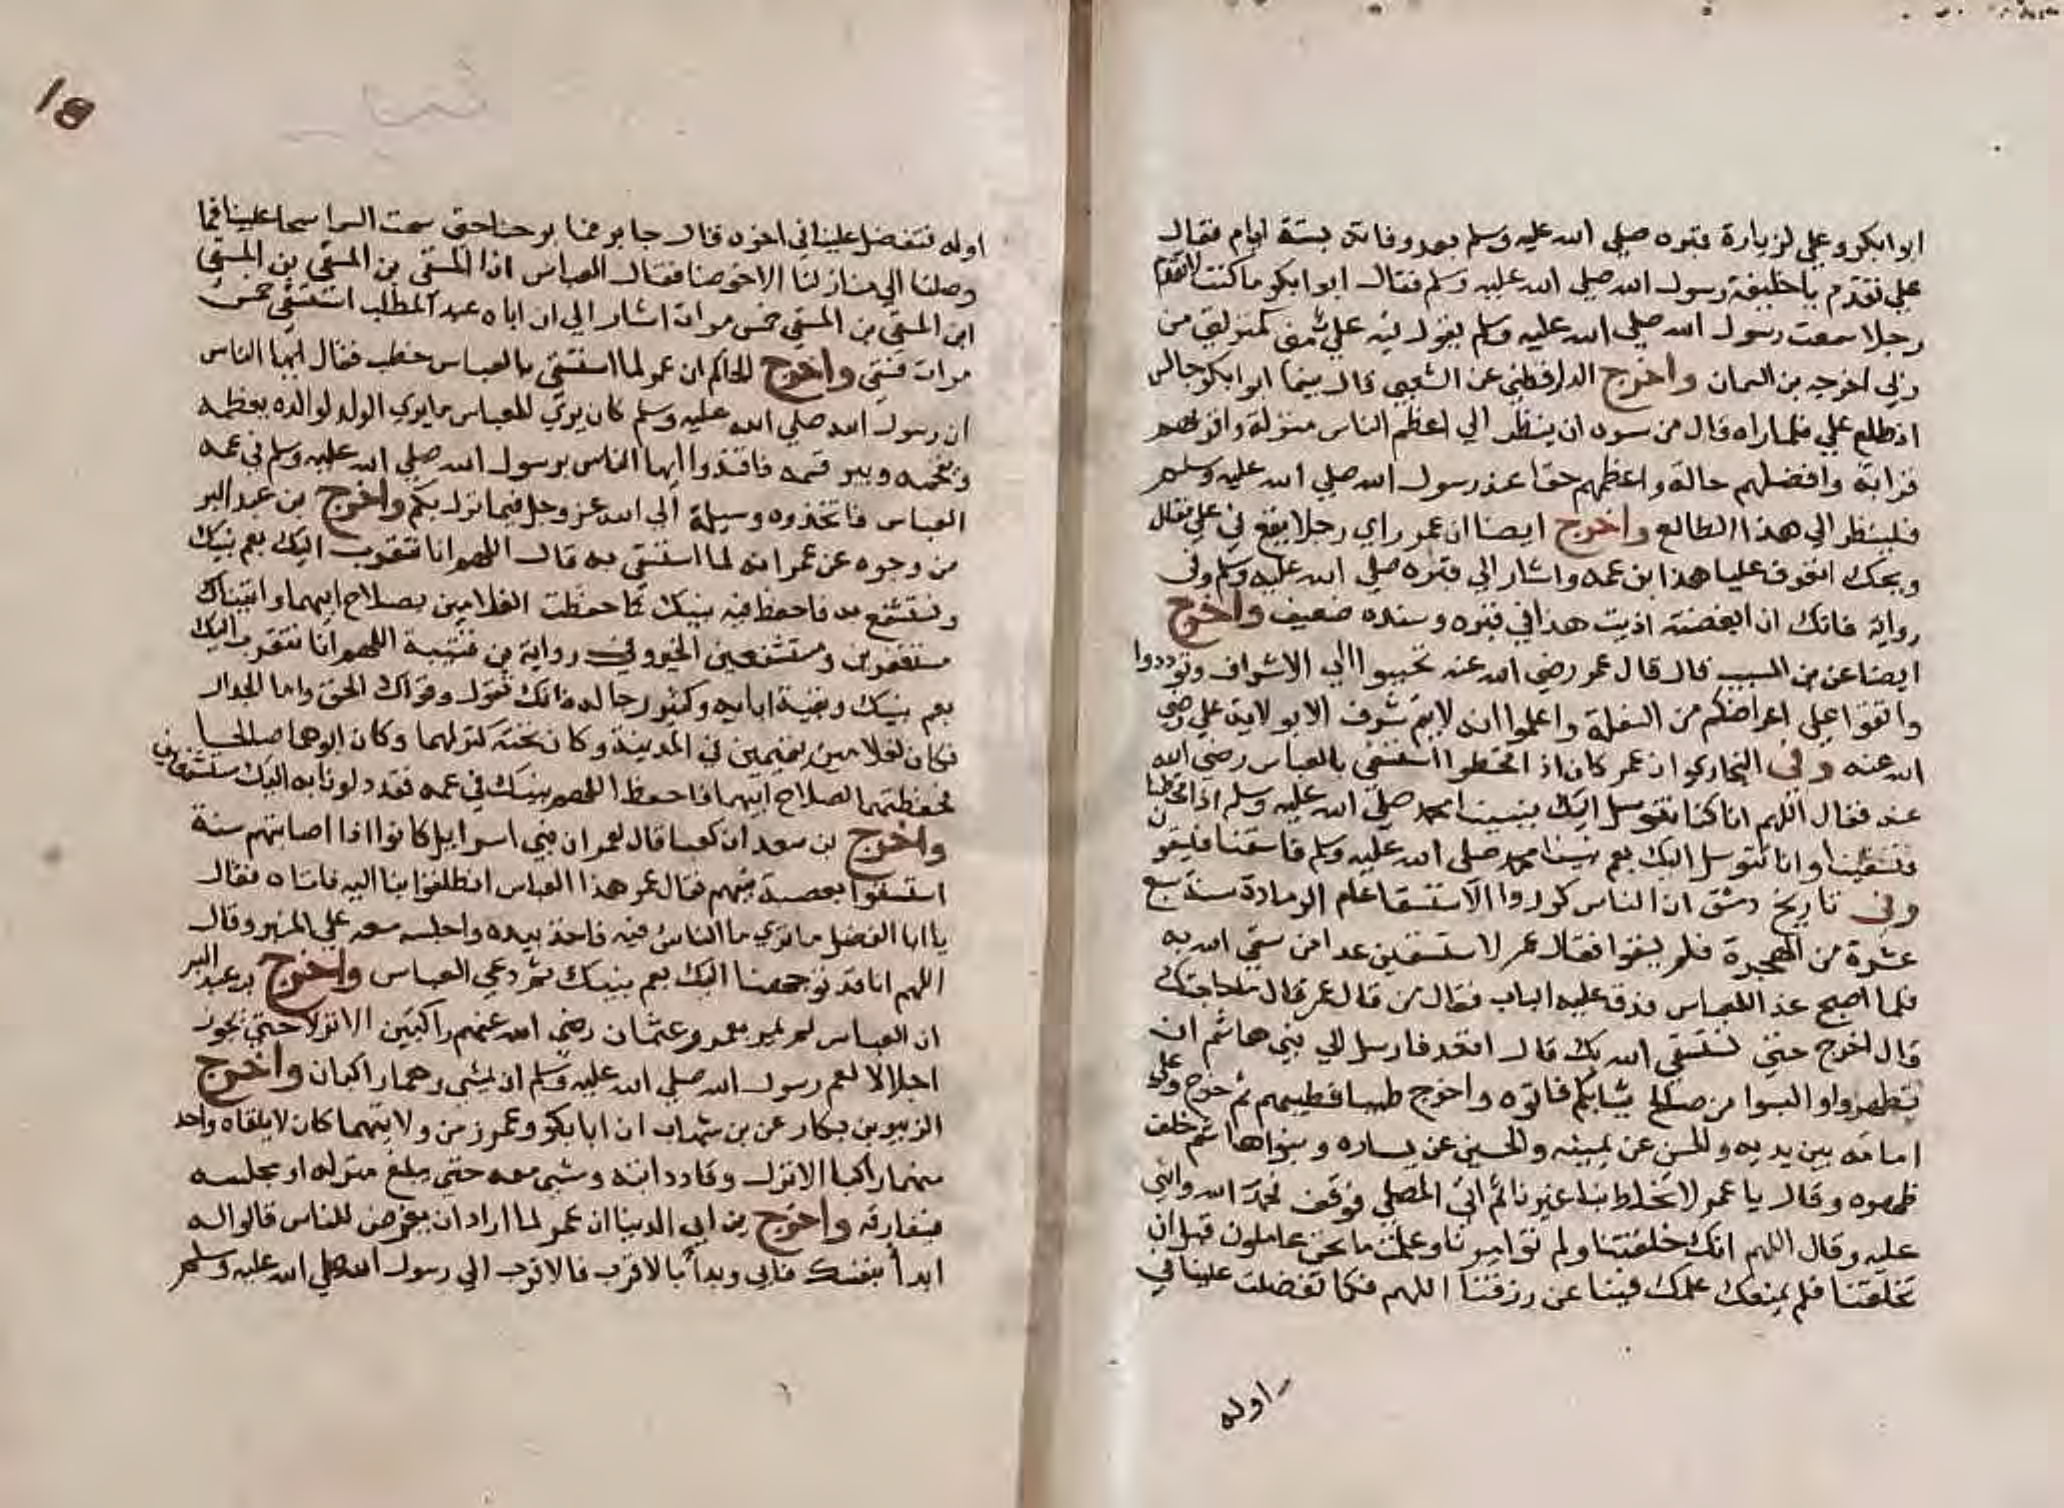 ابوابكر وعلي لزيارة قبره صلي الله عليه وسلم بعد وفاته بستة ايام فقال
علي تقدم يا خليفة رسول الله صلي الله عليه وسلم فقال ابوابكر ما كنت لاتقدم
رجلا سمعت رسول الله صلي الله عليه وسلم يقول فيه علي مني كمنزلتي من
ربي اخرجه بن السمان واخرج الدارقطني عن الشعبي قال بينما ابوابكر جالس
اذ طلع علي فلما راه قال من سره ان ينظر الي اعظم الناس منزلة واقربهم
قرابة وافضلهم حالة واعظمهم حقا عند رسول الله صلي الله عليه وسلم
فلينظر الي هذا الطالع واخرج ايضا ان عمر راي رجلا يقع في علي فقال
ويحك اتعرف عليا هذا بن عمه واشار الي قبره صلي الله عليه وسلم وفي
رواية فانك ان ابغضته اذيت هذا في قبره وسنده ضعيف واخرج
ايضا عن بن المسيب قال قال عمر رضي الله عنه تحببوا الي الاشراف وتوددوا
واتقوا علي اعراضكم من السفلة واعلموا انه لا يتم شرف الا بولاية علي رضي
الله عنه وفي البخاري ان عمر كان اذا قحطوا استسقي بالعباس رضي الله
عنه فقال اللهم انا كنا نتوسل اليك بنبينا محمد صلي الله عليه وسلم اذا قحطنا
فتسقينا وانا نتوسل اليك بعم نبينا محمد صلي الله عليه وسلم فاسقنا فيسقون
وفي تاريخ دمشق ان الناس كرروا الاستسقا عام الرمادة سنة سبع
عشرة من الهجرة فلم يسقوا فقال عمر لاستسقين غدا من يسقي الله به
فلما اصبح غدا للعباس فدق عليه الباب فقال من قال عمر قال ما حاجتك
قال اخرج حتي نستسقي الله بك قال اقعد فارسل الي بني هاشم ان
تطهروا والبسوا من صالح ثيابكم فاتوه واخرج طيبا فطيبهم ثم خرج وعلي
امامه بين يديه والحسن عن يمينه والحسين عن يساره وبنوا هاشم خلف
ظهره وقال يا عمر لا تخلط بنا غيرنا ثم اتي المصلي فوقف فحمد الله واثني
عليه وقال اللهم انك خلقتنا ولم تؤامرنا وعلمت ما نحن عاملون قبل ان
تخلقتنا فلم يمنعك علمك فينا عن رزقنا اللهم فكما تفضلت علينا في
اوله
18
اوله فتفضل علينا في اخره قال جابر فما برحنا حتي سحت السما سحا علينا فما
وصلنا الي منازلنا الا خوضا فقال العباس انا المسقي بن المسقي بن المسقي
ابن المسقي بن المسقي خمس مرات اشار الي ان اباه عبد المطلب استسقي خمس
مرات فسقي واخرج الحاكم ان عمر لما استسقي بالعباس خطب فقال ايها الناس
ان رسول الله صلي الله عليه وسلم كان يري للعباس ما يري الولد لوالده يعظمه
ويفخمه ويبر قسمه فاقتدوا ايها الناس برسول الله صلي الله عليه وسلم في عمه
العباس فاتخذوه وسيلة الي الله عز وجل فيما نزل بكم واخرج بن عبد البر
من وجوه عن عمر انه لما استسقي به قال اللهم انا نتقرب اليك بعم نبيك
ونستشفع به فاحفظ فيه نبيك كما حفظت الغلامين بصلاح ابيهما واتيناك
مستغفرين ومستشفعين الخبر وفي رواية بن قتيبة اللهم انا نتقرب اليك
بعم نبيك وبقية ابايه وكبر رجاله فانك تقول وقولك الحق واما الجدار
فكان لغلامين يتيمين في المدينة وكان تحته كنز لهما وكان ابوهما صالحا
فحفظتهما لصلاح ابيهما فاحفظ اللهم نبيك في عمه فقد دلونا به اليك مستشفعين
واخرج بن سعد ان كعبا قال لعمر ان بني اسرايل كانوا اذا اصابتهم سنة
استسقوا بعصبة نبيهم فقال عمر هذا العباس انطلقوا بنا اليه فاتاه فقال
يا ابا الفضل ما تري ما الناس فيه فاخذ بيده واجلسه معه علي المنبر وقال
اللهم انا قد توجهنا اليك بعم نبيك ثم دعي العباس واخرج بن عبد البر
ان العباس لم يمر بعمر وعثمان رضي الله عنهم راكبين الا نزلا حتي يجوز
اجلالا لعم رسول الله صلي الله عليه وسلم ان يمشي وهما راكبان واخرج
الزبير بن بكار عن بن شهاب ان ابابكر وعمر زمن ولايتهما كان لا يلقاه واحد
منهما راكبا الا نزل وقاد دابته ومشي معه حتي يبلغ منزله او مجلسه
فيفارقه واخرج بن ابي الدنيا ان عمر لما اراد ان يفرض للناس قالوا له
ابدأ بنفسك فابي وبدأ بالاقرب فالاقرب الي رسول الله صلي الله عليه وسلم